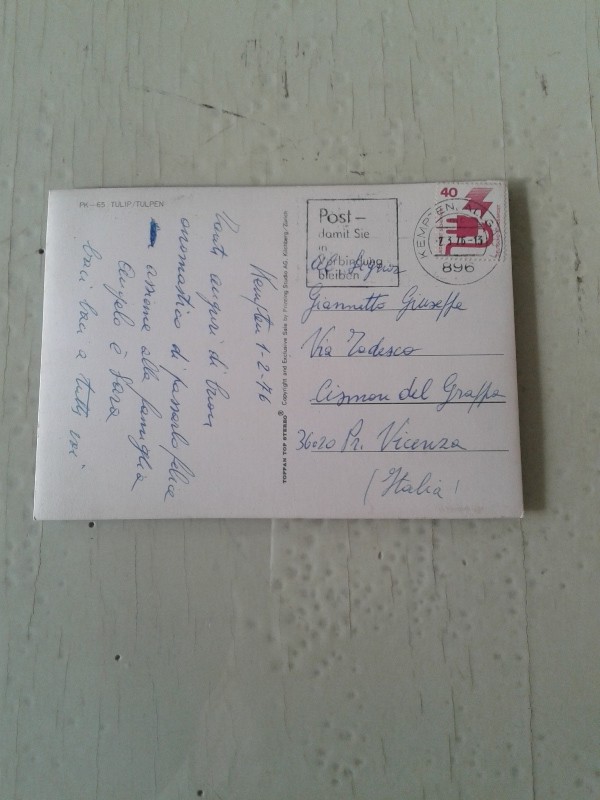 PK-65 TULIP/TULPEN
Kempten 1-2-76
Tanti auguri di buon
onomastico di passarlo felice
assieme alla famiglia
Angelo è Sara
baci ciau a tutti voi
TOPPAN TOP STEREO® Copyright and Exclusive Sale by
Post-
damit Sie
in
Verbindung
bleiben
40
KEMPTEN
896
Al Signor
Giannetto Giuseppe
Via Todesco
Cismon del Grappa
36020 Pr. Vicenza
(Italia)